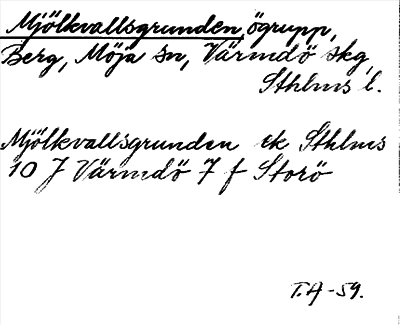 Mjölkvallsgrunden ögrupp,
Berg, Möja sn, Värmdö skg,
Sthlms l.
Mjölkvallsgrunden ek Sthlms
10 J Värmdö 7 f Storö
T.A -59.